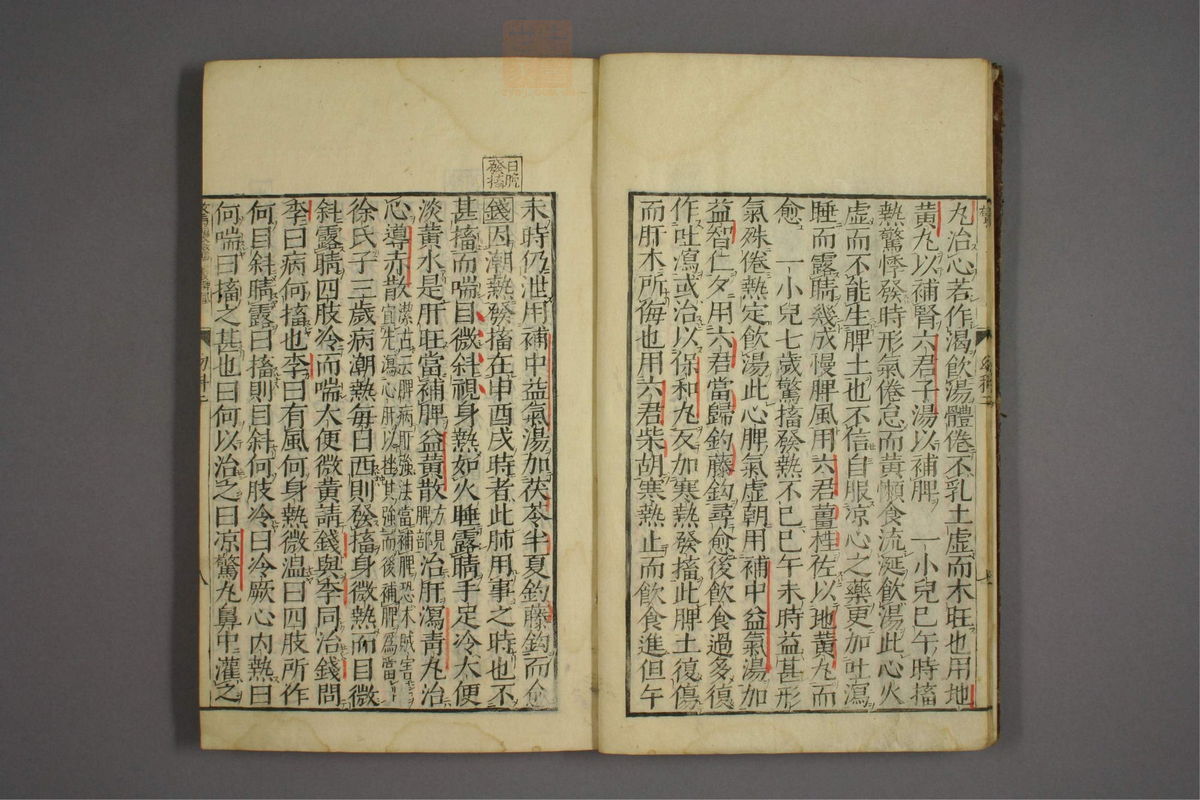 丸治心若作渴飲湯體倦不乳土虛而木旺也用地
黃丸以補腎六君子湯以補脾　一小兒巳午時搐
熱驚悸發時形氣倦怠而黃懶食流涎飲湯此心火
虛而不能生脾土也不信自服凉心之藥更加吐瀉
睡而露睛幾成慢脾風用六君薑桂佐以地黃丸而
愈　一小兒七歲驚搐發熱不已巳午未時益甚形
氣殊倦熱定飲湯此心脾氣虛朝用補中益氣湯加
益智仁夕用六君當歸釣藤鈎尋愈後飲食過多復
作吐瀉或治以保和丸反加寒熱發搐此脾土復傷
而肝木所侮也用六君柴胡寒熱止而飲食進但午
未時仍泄用補中益氣湯加茯苓半夏釣藤鈎而愈
日晩發搐
錢因潮熱發搐在申酉戌時者此肺用事之時也不
甚搐而喘目微斜視身熱如火睡露睛手足冷大便
淡黃水是肝旺當補脾益黃散方見脾部治肝瀉青丸治
心導赤散潔古云脾病肝強法當補脾恐木賊害宜先瀉心肝以挫其強而後補脾爲當
徐氏子三歲病潮熱每日西則發搐身微熱而目微
斜露睛四肢冷而喘大便微黃請錢與李同治錢問
李曰病何搐也李曰有風何身熱微溫曰四肢所作
何目斜睛露曰搐則目斜何肢冷曰冷厥必內熱曰
何喘曰搐之甚也曰何以治之曰凉驚丸鼻中灌之